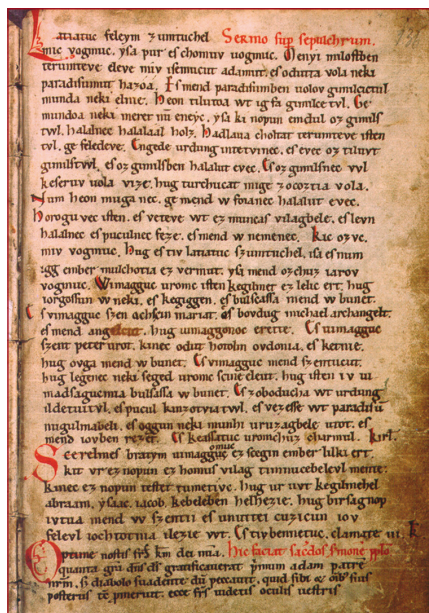 Latiatuc feleym zumtuchel Sermo sup sepulchrum.
mic vogmuc. ysa pur es chomuv uogmuc. Menyi milostben
terumteve eleve miv isemucut adamut. es odutta vola neki
paradisumut hazoa. Es mend paradisumben uolov gimilcictul
munda neki elnie. Heon tilutoa wt ig fa gimilce tvl. Ge
mundoa neki meret nū eneyc. ysa ki nopun emdul oz gimils
twl. halalnec halalaal holz. Hadlaua choltat terumteve isten
tvl. ge feledeve. Engede urdung intetvinec. es evec oz tiluvt
gimilstwl. es oz gimilsben halalut evec. Es oz gimilsnec vvl
keseruv uola vize. hug turchucat mige zocoztia vola.
Num heon muga nec. ge mend w foianec halalut evec.
Horogu vec isten. es veteve wt ez muncas vilagbele. es levn
halalnec es puculnec feze. es mend w nemenec. Kic ozvc.
miv vogmuc. Hug es tiv latiatuc szumtuchel. isa es num
igg ember mulchotia ez vermut. ysa mend ozchuz iarov
vogmuc. Wimagguc uromc isten kegilmet ez lelic ert. hug
iorgossun w neki. es kegiggen. es bulsassa mend w bunet.
Es vimagguc szen achscin mariat. es bovdug michael archangelt.
es mend angelcut. hug uimaggonoc erette. Es uimagguc
szent peter urot. kinec odut hotolm ovdonia. es ketnie.
hug ovga mend w bunet. Es vimagguc mend szentucut.
hug legenec neki seged uromc scine eleut. hug isten iv ui
madsagucmia bulsassa w bunet. Es zoboducha wt urdung
ildetuitvl. es pucul kinzotviatwl. es vezesse wt paradisū
nugulmabeli. es oggun neki munhi uruzagbele utot. es
mend iovben rezet. Es keassatuc uromchuz charmul. Kirl.
Scerelmes bratym uimagguc omuc ez scegin ember lilki ert.
kit vr ez nopun ez homus vilag timnucebelevl mente.
kinec ez nopun testet tumetivc. hug ur uvt kegilmehel
abraam. ysaac. iacob. kebeleben helhezie. hug birsagnop
ivtua mend w szentii es unuttei cuzicun iov
felevl iochtotnia ilezie wt. Es tivbennetuc. clamate iii. k
Oratione nostis frs km dei mia. Hic faciat sacdos smone pplo
quanta gra dns ds gratificaverat primum adam patre
nrm. si diabolo suadente dū peccavit. quid sibi et oibus suis
posteris